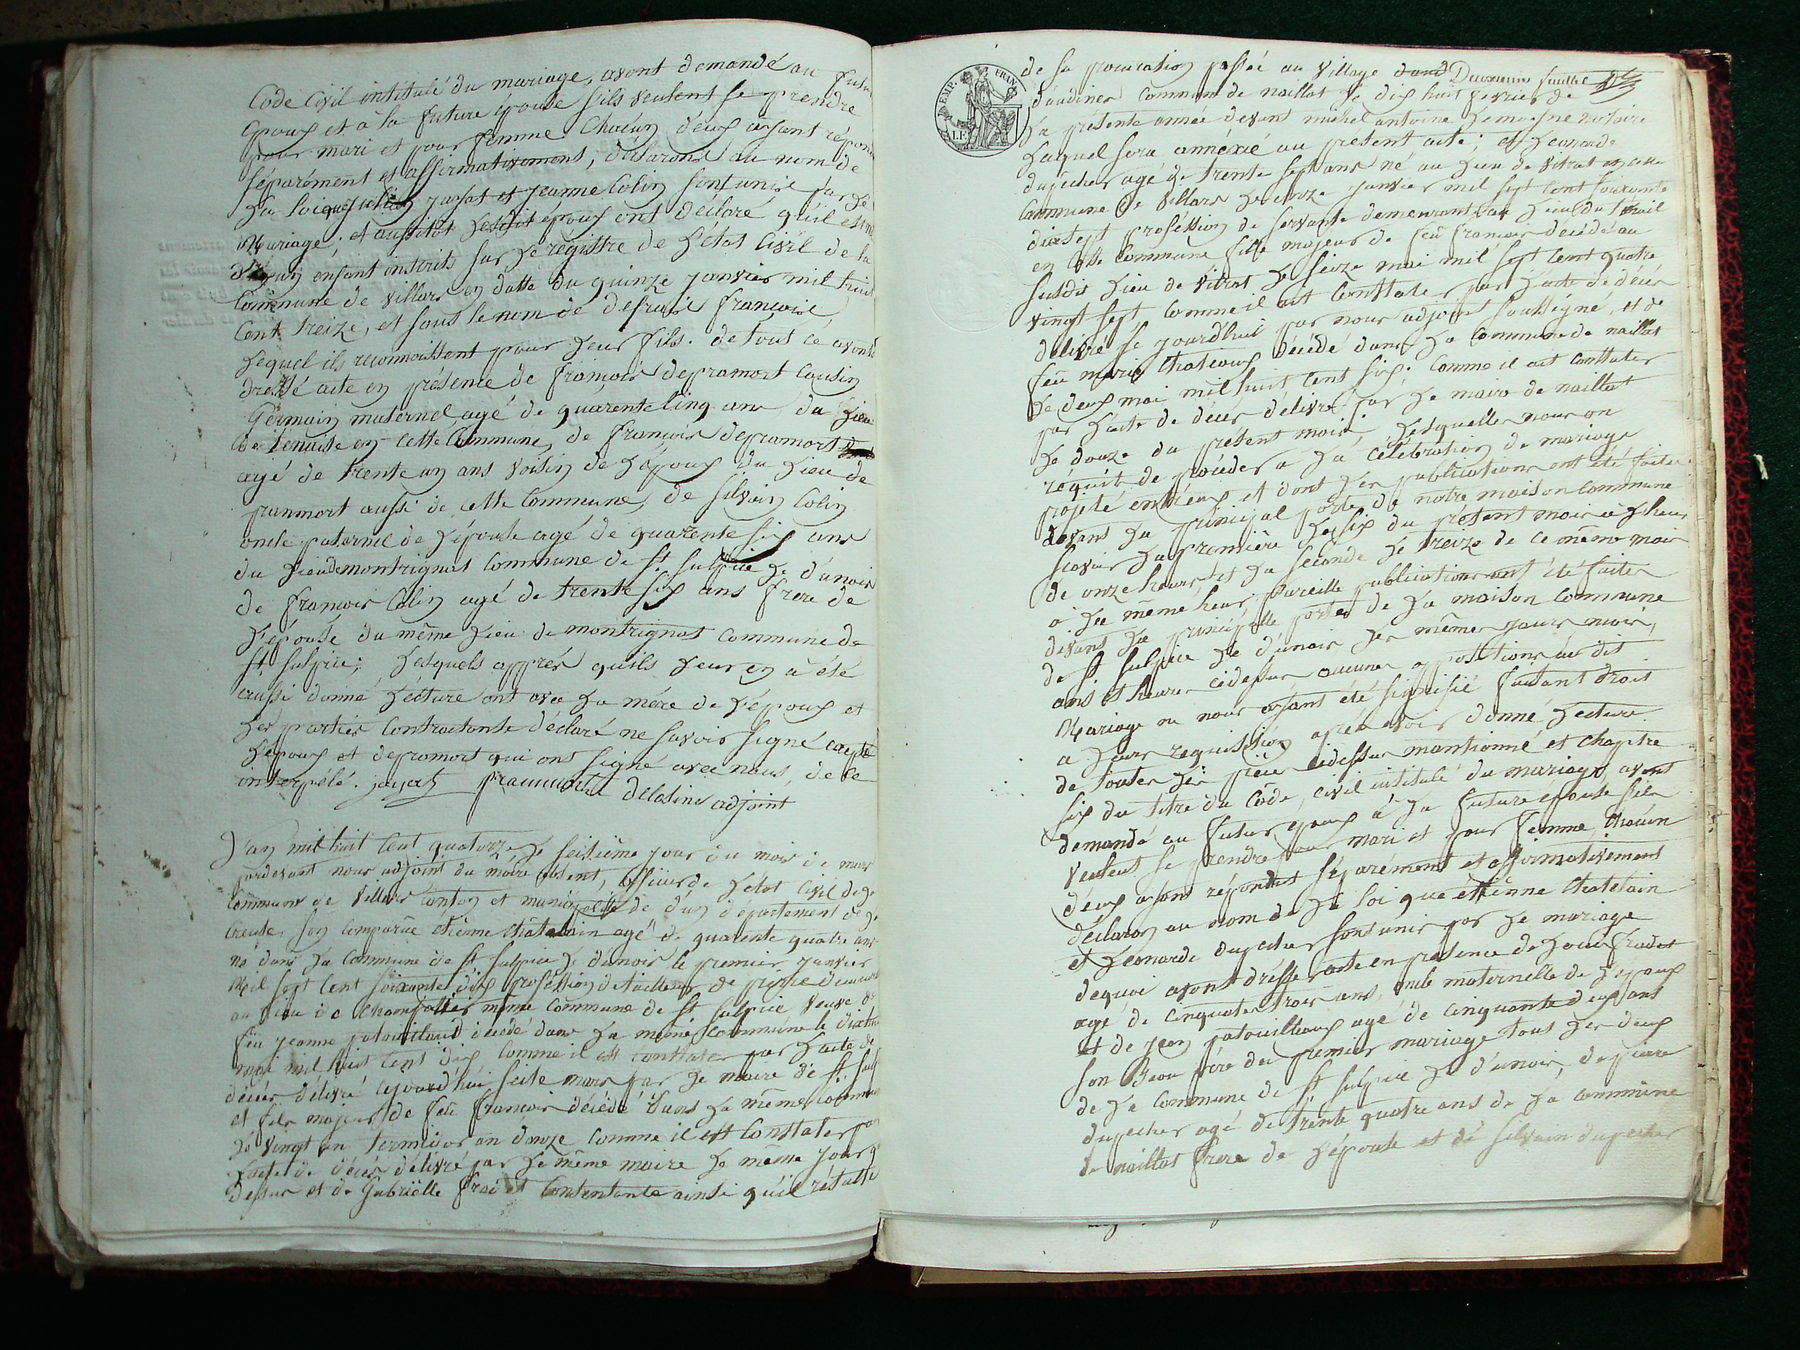 Code Civil intitulé du mariage, avont demandé au futur
Epoux et à la future epouse sils veulent se prendre
pour mari et pour femme Chacun deux ayant répondu
séparément et affirmativement, déclarons au nom de
la loi que jayat et Jeanne Colin sont unis par le
Mariage; et aussitot lesdit epoux ont déclaré qu'il est né
un enfant inscrits sur le régistre de l'état Civil de la
Commune de Villars en datte du quinze janvier mil huit
Cent treize, et sous le nom de defrase françois
lequel ils reconnoissent pour leur fils. de tout ce avons
dressé acte en présence de françois depramort Cousin
Germain maternel agé de quarente cinq ans du lieu
de en cette Commune, de francois depramort
agé de trente un ans voisin de l'époux du lieu de
pranmort aussi de cette Commune, de silvain Colin
oncle paternel de l'épouse agé de quarente six ans
du lieu de montrignat Commune de st sulpice le dunois
de francois Colin agé de trente six ans frere de
l'épouse du même lieu de montrignat commune de
st sulpice; lesquels apprés quils leur en a été
aussi donné lecture ont avec la mère de l'époux et
les parties Contractante déclaré ne savoir signé excepté
l'epoux et depramort qui ont signé avec nous, de ce
interpélé. jayat pranmort delaine adjoint
L'an mil huit Cent quatorze le seisième jour du mois de mars
pardevant nous adjoint du maire absent, officier de l'état Civil de la
Commune de Villars Canton et municipalité de dun département de la
Creuse, son comparue étienne Châtelain agé de quarente quatre ans
né dans la Commune de st sulpice le dunois le premier janvier
Mil sept Cent soixante dix profession de tailleur de pierre demeurant
au lieu de même Commune de st sulpice veuve de
feu jeanne patouillaud décédé dans la même Commune le
mai mil huit Cent dix Comme il est conttater par l'acte de
décés délivré cejourd'hui seise mars par le maire de st sulp
et fils majeur de feu françois décédé dans la même Commune
le vingt un termidor an douze Comme il est Conttater par
l'acte de décés délivré par le même maire le même jour que
dessus et de Gabriëlle Contentante ainsi qu'il résulte
EMP. FRAN.
de sa procuration passée au village Deuxieme feuillet
d'audiner Commune de naillat le dix huit fevrier de
la présente année devant michel antoine notaire
Laquel sera annéxé au présent acte; et leonarde
dupecher agé de trente sept ans né au lieu de vitrat en cette
Commune de Villars le onze janvier mil sept Cent soixante
dixsept proféssion de servante demeurant au lieu du
en dte Commune fille majeur de feu françois décédé au
susdit lieu de vitrat le seize mai mil sept Cent quatre
vingt sept comme il est Conttater par l'acte de décés
délivré ce jourd'hui par nous adjoint soussigné, et de
feu marie Chateaux décédé dans la Commune de naillat
le deux mai mil huit Cent six; Comme il est conttater
par l'acte de décés délivré par le maire de naillat
le douze du présent mois. Lesquelle nous on
requit de procéder a la célébration de mariage
projeté entreux et dont les publications ont été faite
devant la principal porte de notre maison Commune
scavoir la première le six du présent mois a l'heure
de onze heures et la seconde le treize de ce même mois
à la meme heur, pareille publications ont été faites
devant la principalle portes de la maison Commune
de st sulpice le dunois les mêmes jours mois,
ans et heures cidessus aucunes oppositions au dit
Mariage ne nous ayant été signifié faisant droit
a leurs requisition apres avoir donné lecture
de toutes les pieces cidessus mantionné et chapitre
six du titre du Code, civil intitulé du mariage, avont
demandé au futur epoux à la future epouse sils
veulent se prendre pour mari et pour femme, chacun
deux ayant répondus séparément et affirmativement
déclaron au nom de la loi que étiènne Chatelain
et Leonarde dupecher sont unis par le mariage
dequoi avont dressé acte en présence de
agé de cinquante trois ans, oncle maternelle de l'époux
et de jean patouilleaux agé de cinquante deux ans
son beau père du premier mariage tous les deux
de la Commune de st sulpice le dunois, de pierre
dupecher agé de trente quatre ans de la commune
de naillat frere de l'épouse et de silvain dupecher